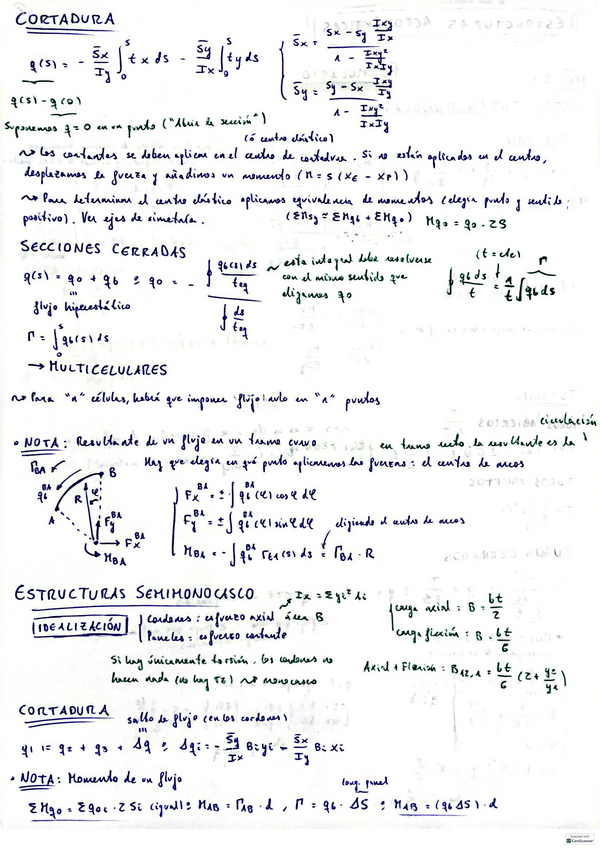 CORTADURA
q(s) = - S̄x/Iy ∫₀ˢ t x ds - S̄y/Ix ∫₀ˢ t y ds
S̄x = (Sx - Sy Ixy/Ix) / (1 - Ixy²/IxIy)
S̄y = (Sy - Sx Ixy/Iy) / (1 - Ixy²/IxIy)
q(s) - q(0)
Suponemos q = 0 en un punto ("Abrir la sección")
(ó centro elástico)
~> Los cortantes se deben aplicar en el centro de cortadura. Si no están aplicados en el centro,
desplazamos la fuerza y añadimos un momento (M = S (XE - XP))
~> Para determinar el centro elástico aplicamos equivalencia de momentos (elegir punto y sentido
positivo). Ver ejes de simetría. (ΣMSy = ΣMqb + ΣMq0) Mq0 = q0 · 2S
SECCIONES CERRADAS
q(s) = q0 + qb ; q0 = - ∮ qb(s) ds/teq / ∮ ds/teq
~> esta integral debe resolverse
con el mismo sentido que
elijamos q0
(t = cte)
∮ qb ds/t = 1/t ∫ qb ds
Γ
flujo hiperestático
Γ = ∫₀ˢ qb(s) ds
→ MULTICELULARES
~> Para "n" células, habrá que imponer flujo nulo en "n" puntos
circulación
• NOTA: Resultante de un flujo en un tramo curvo en tramo recto la resultante es la
Hay que elegir en qué punto aplicamos las fuerzas: el centro de arcos
ΓBA
qb BA
B
A
R
φ
Fy BA
Fx BA
MBA
Fx BA = ± ∫ qb BA (φ) cos φ dφ
Fy BA = ± ∫ qb BA (φ) sin φ dφ
eligiendo el centro de arcos
MBA = - ∫ qb BA rEA (s) ds = ΓBA · R
ESTRUCTURAS SEMIMONOCASCO
Ix = Σ yi² Ai
IDEALIZACIÓN
Cordones: esfuerzo axial área B
Paneles: esfuerzo cortante
carga axial: B = bt/2
carga flexión: B = bt/6
Si hay únicamente torsión, los cordones no
hacen nada ~> monocasco
Axial + Flexión: B12,1 = bt/6 (2 + y2/y1)
CORTADURA
salto de flujo (en los cordones)
q1 = q2 + q3 + Δq ; Δqi = - S̄y/Ix Bi yi - S̄x/Iy Bi xi
• NOTA: Momento de un flujo
long. panel
ΣMq0 = Σq0i · 2Si ; MAB = ΓAB · d , Γ = qb · ΔS ; MAB = (qb ΔS) · d
CamScanner